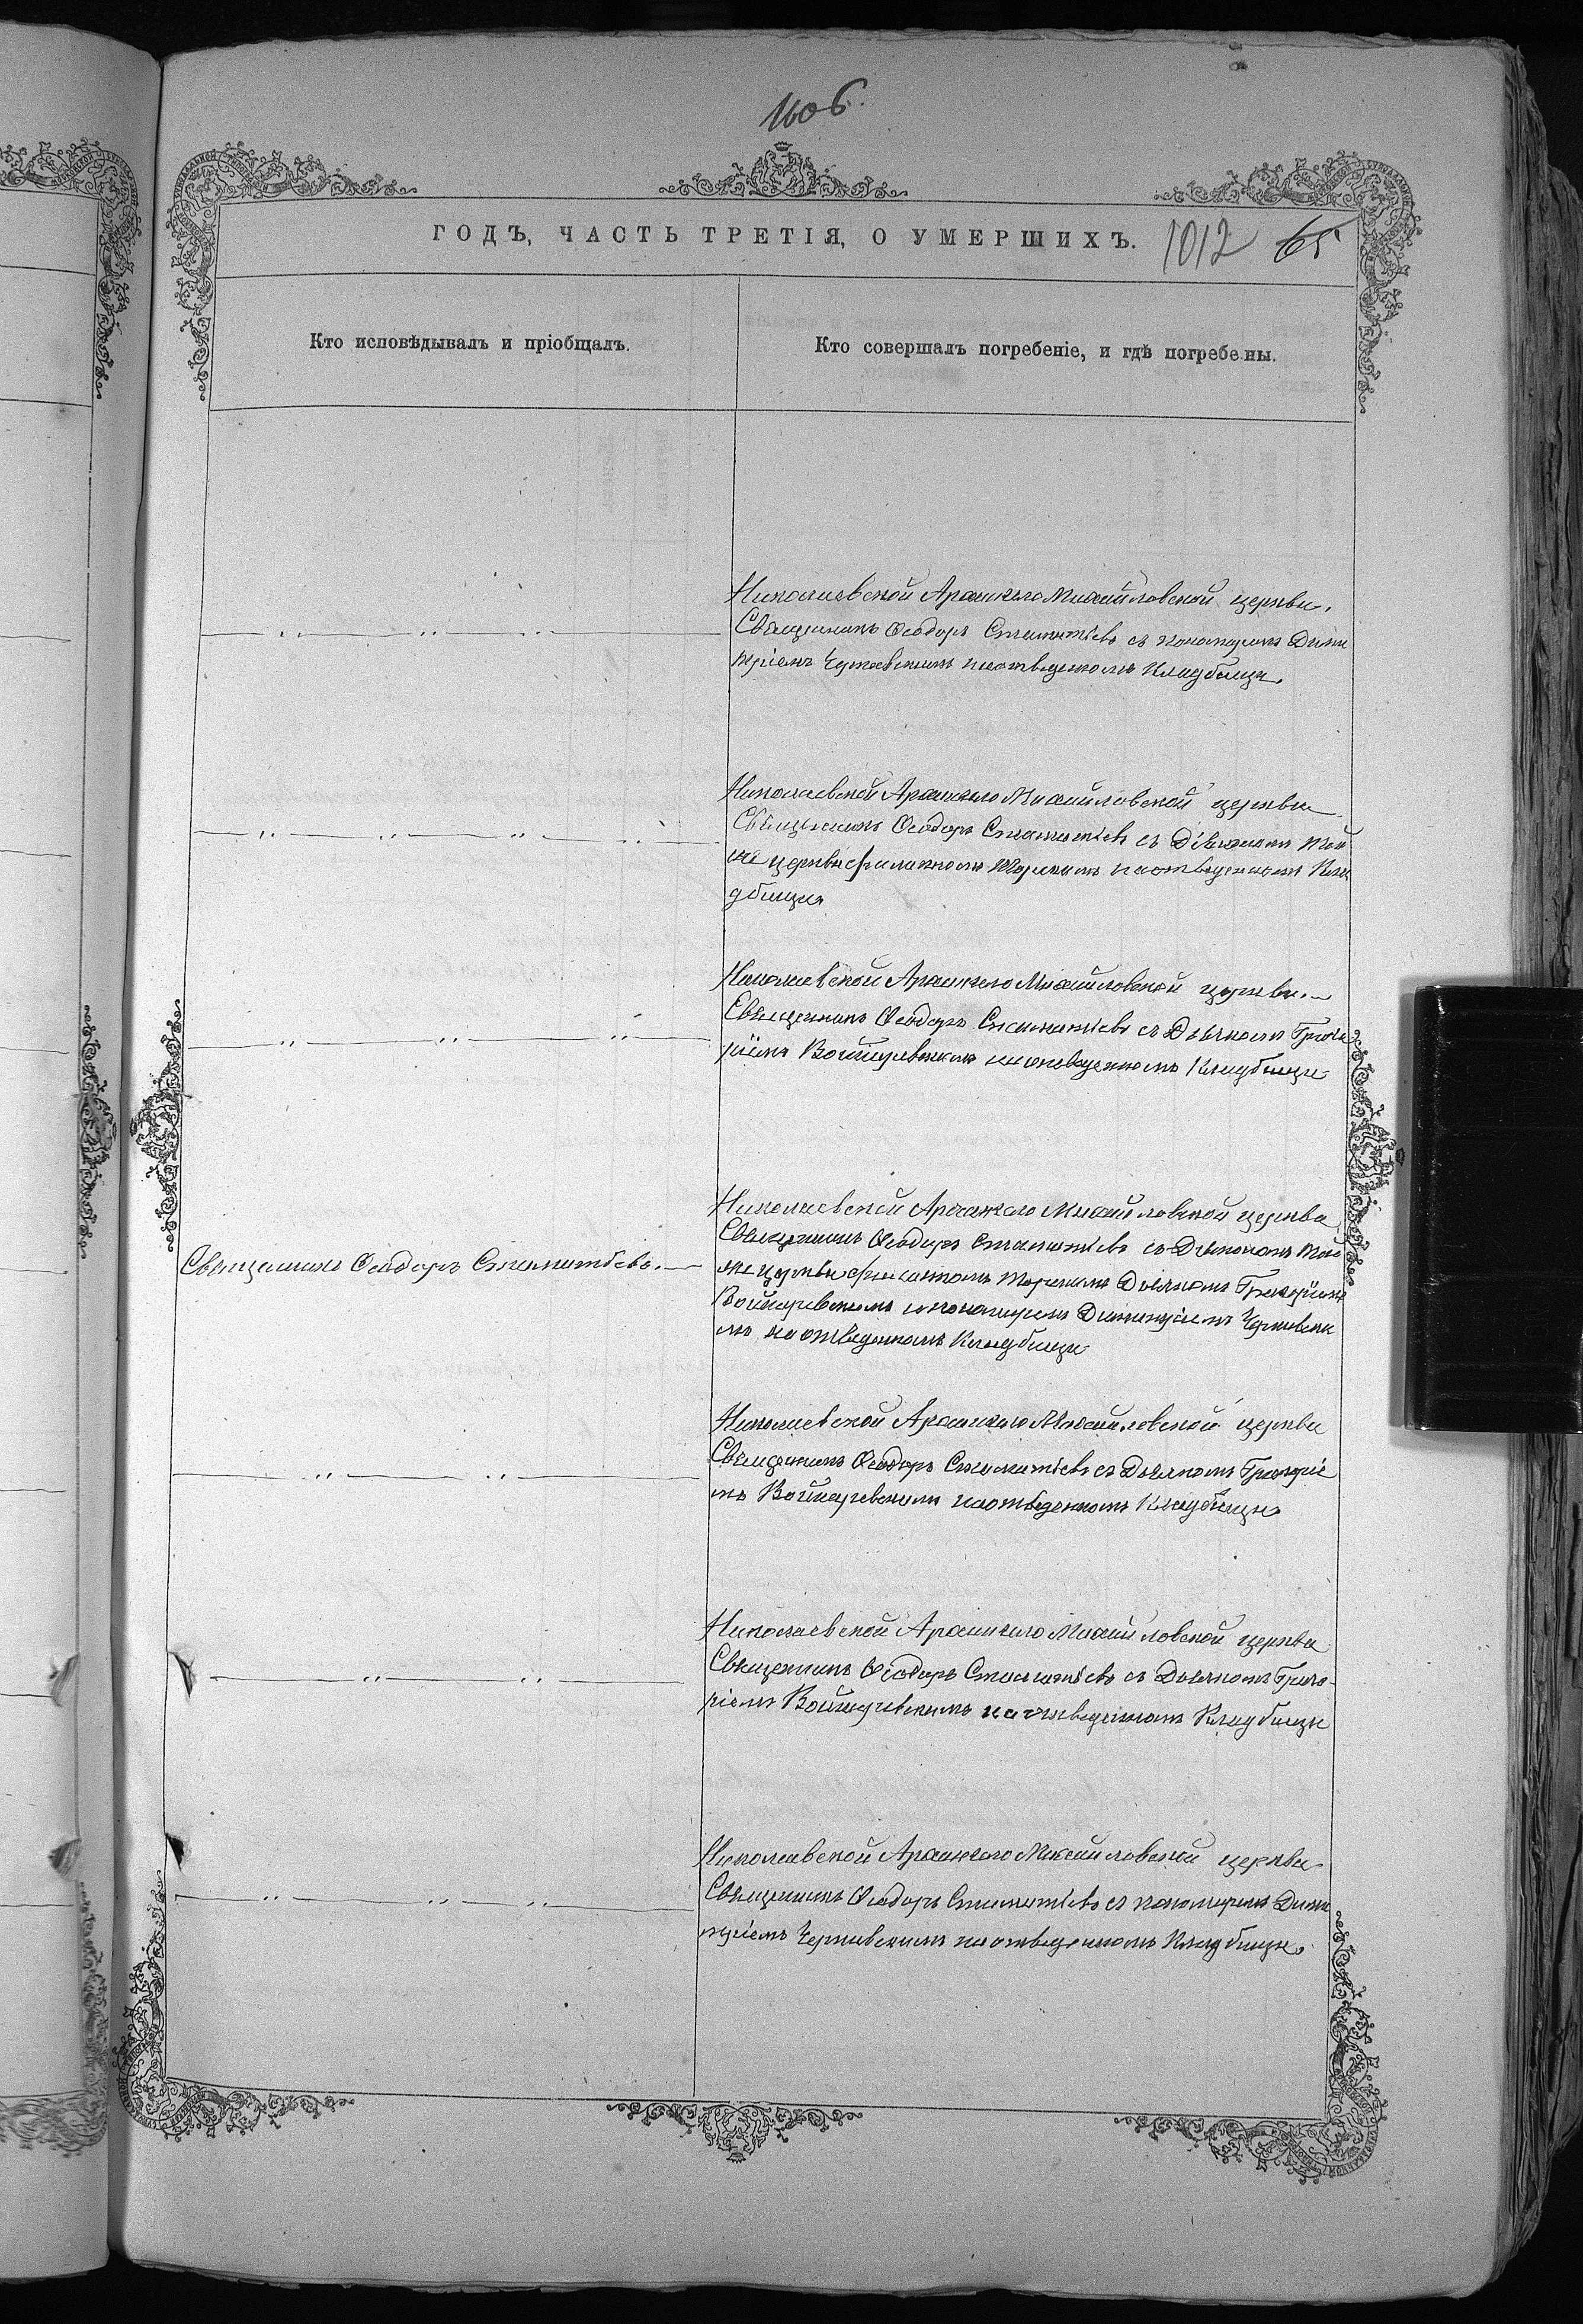 1606.
ГОДЪ, ЧАСТЬ ТРЕТІЯ, О УМЕРШИХЪ. 1012 65
Кто исповѣдывалъ и пріобщалъ.
Кто совершалъ погребеніе, и гдѣ погребены.
Николаевской Архангело Михайловской церкви.
Священникъ Ѳеодоръ Стаматіевъ съ пономаремъ Дими
тріемъ Чернявскимъ на отведенномъ Кладбищи.
Николаевской Архангело Михайловской церкви
Священникъ Ѳеодоръ Стаматіевъ съ Діякономъ той
же церкви на отведенномъ Кла
дбищи
Николаевской Архангело Михайловской церкви.
Священникъ Ѳеодоръ Стаматіевъ съ Дьякомъ Григо
ріемъ Войцеревскимъ на отведенномъ Кладбищи
Николаевской Архангело Михайловской церкви
Священникъ Ѳеодоръ Стаматіевъ.
Священникъ Ѳеодоръ Стаматіевъ съ Діякономъ той
же церкви Дьякомъ Григоріемъ
Войцеревскимъ и пономаремъ Димитріемъ Чернявски
мъ на отведенномъ Кладбищи
Николаевской Архангело Михайловской церкви
Священникъ Ѳеодоръ Стаматіевъ съ Дьякомъ Григоріе
мъ Войцеревскимъ на отведенномъ Кладбищи
Николаевской Архангело Михайловской церкви
Священникъ Ѳеодоръ Стаматіевъ съ Дьякомъ Григо-
ріемъ Войцеревскимъ на отведенномъ Кладбищи
Николаевской Архангело Михайловской церкви
Священникъ Ѳеодоръ Стаматіевъ съ пономаремъ Дими
тріемъ Чернявскимъ на отведенномъ Кладбищи.